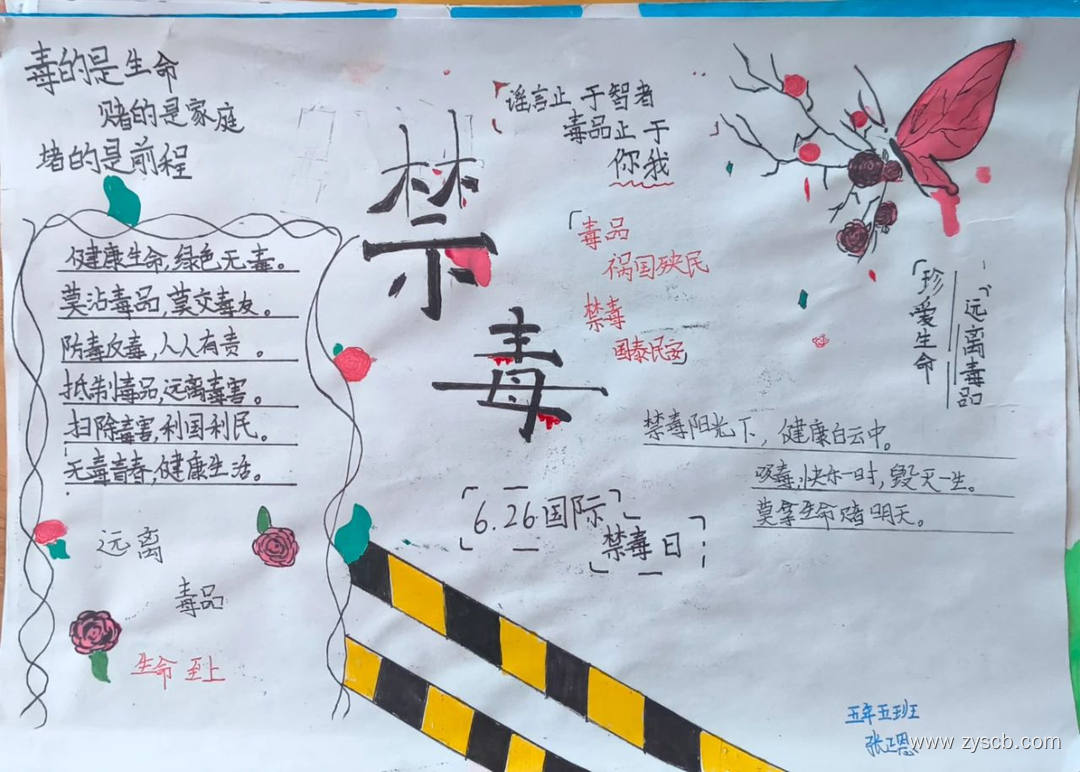 毒的是生命
赌的是家庭
堵的是前程
健康生命,绿色无毒。
莫沾毒品,莫交毒友。
防毒反毒,人人有责。
抵制毒品,远离毒害。
扫除毒害,利国利民。
无毒青春,健康生活。
远离
毒品
生命至上
禁
毒
谣言止于智者
毒品止于
你我
「毒品
祸国殃民
禁毒
国泰民安
「珍爱生命
「远离毒品
禁毒阳光下,健康白云中。
吸毒,快乐一时,毁灭一生。
莫拿生命赌明天。
6.26国际
禁毒日
五年五班
张正恩
www.zyscb.com